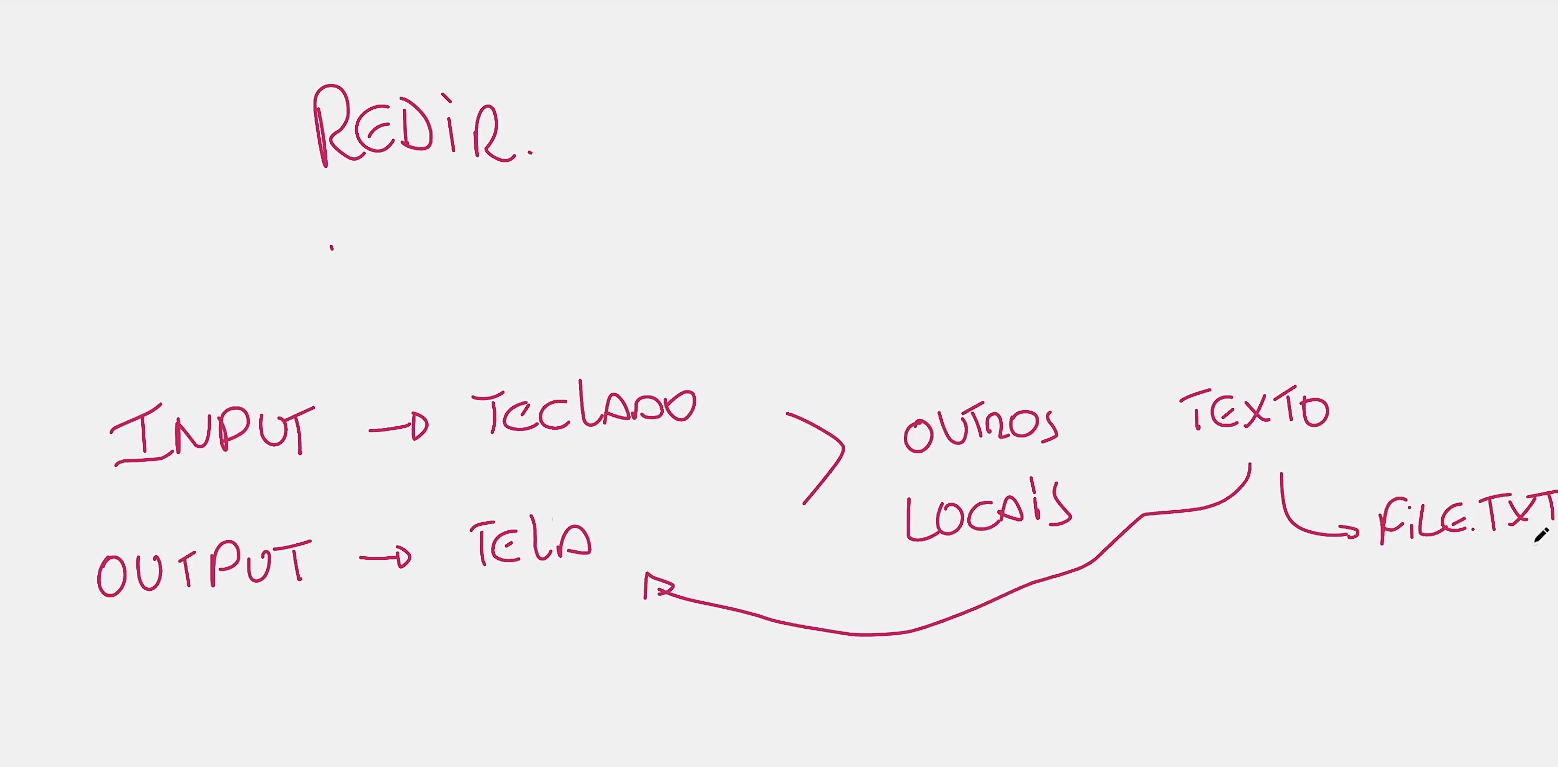 REDIR.
INPUT → TECLADO
OUTPUT → TELA
OUTROS
LOCAIS
TEXTO
FILE.TXT